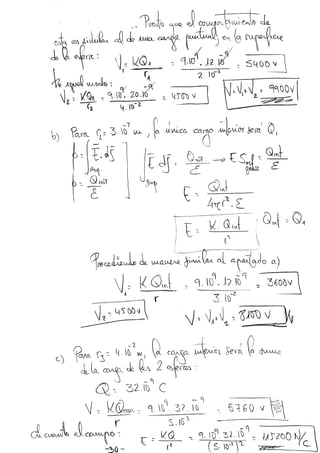 Puesto que el comportamiento de
esta es similar al de una carga puntual, en la superficie
de la esfera: V₁ = KQ₁/r₁ = 9·10⁹·12·10⁻⁹/2·10⁻² = 5400 V
De igual modo:
V₂ = KQ₂/r₂ = 9·10⁹·20·10⁻⁹/4·10⁻² = 4500 V V = V₁ + V₂ = 9900 V
b) Para r₂ = 3·10⁻² m, la única carga interior será Q₁
ϕ = ∫sup E·ds
ϕ = Qint/ε
∫sup E·ds = Qint/ε → E Sesf = Qint/ε
E = Qint/4πr²·ε
E = K·Qint/r² Qint = Q₁
Procediendo de manera similar al apartado a)
V₁ = K Qint/r = 9·10⁹·12·10⁻⁹/3·10⁻² = 3600 V
V₂ = 4500 V V = V₁ + V₂ = 8100 V
c) Para r₃ = 4·10⁻² m, la carga interior será la suma
de la carga de las 2 esferas:
Q = 32·10⁻⁹ C
V = K/r = 9·10⁹·32·10⁻⁹/5·10⁻² = 5760 V
En cuanto al campo: E = KQ/r² = 9·10⁹·32·10⁻⁹/(5·10⁻²)² = 115200 N/C
-30-